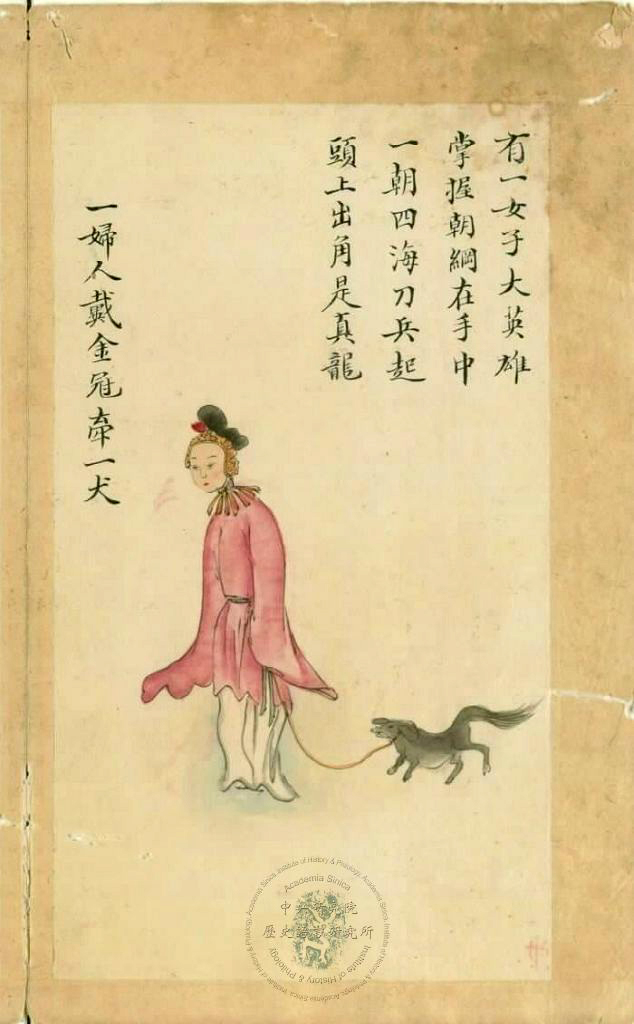 有一女子大英雄
掌握朝綱在手中
一朝四海刀兵起
頭上出角是真龍
一婦人戴金冠牽一犬
Academia Sinica
中央研究院
歷史語言研究所
Institute of History & Philology